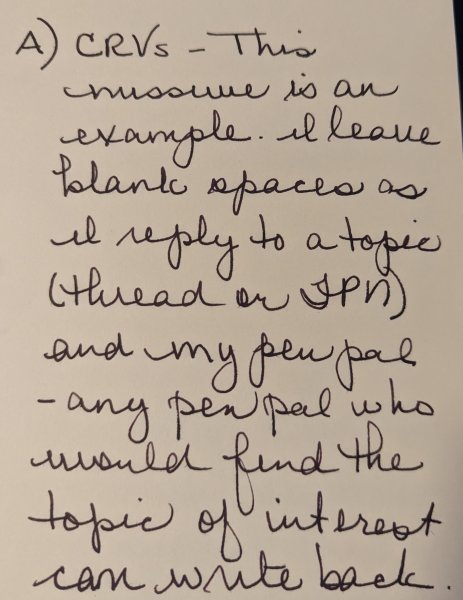 A) CRVs - This
missive is an
example. I leave
blank spaces as
I reply to a topic
(thread or IPN)
and my pen pal
- any pen pal who
would find the
topic of interest
can write back.